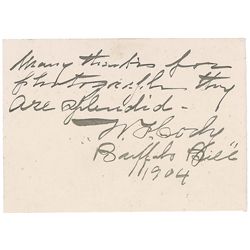 Many thanks for
photograph they
are splendid -
W. F. Cody
"Buffalo Bill"
1904